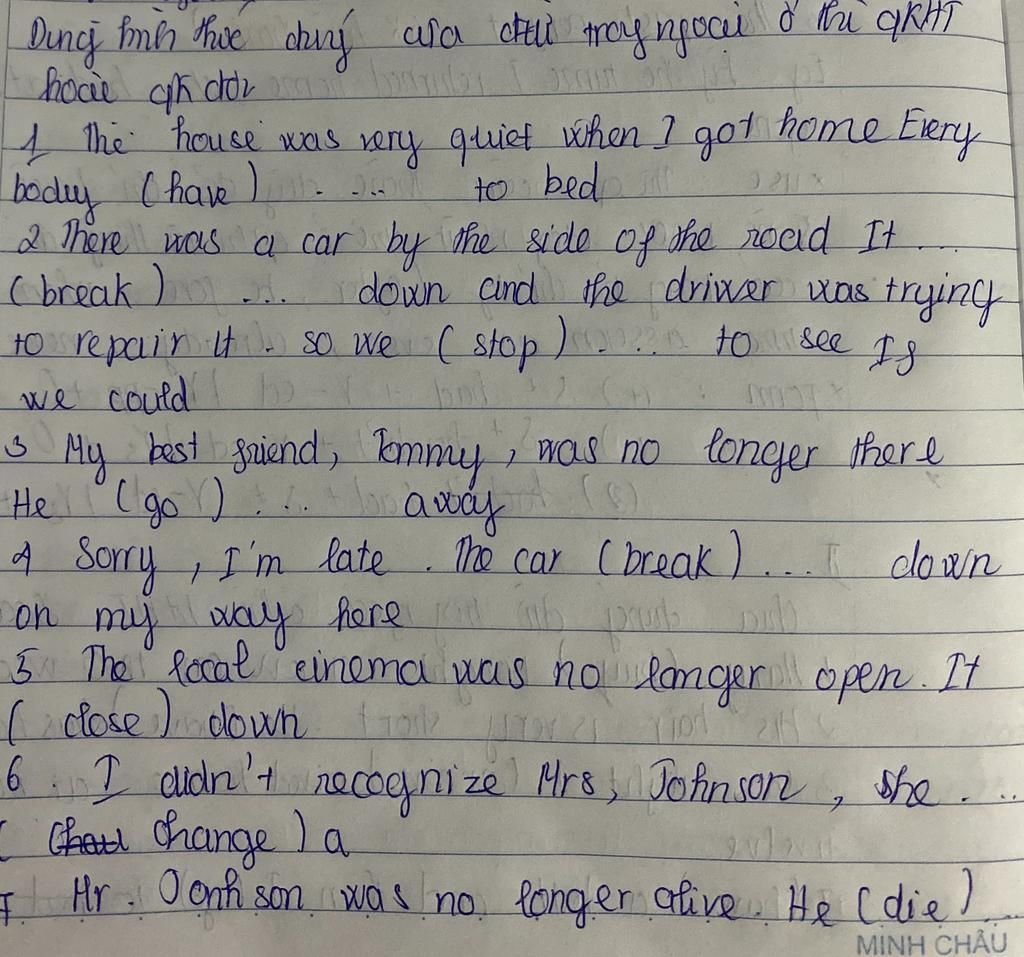 Dùng hình thức đúng của chữ trong ngoặc ở thì QKHT
hoặc qk đơn
1 The house was very quiet when I got home Every
body (have) ... ... to bed
2 There was a car by the side of the road It ...
(break) ... down and the driver was trying
to repair it . so we (stop) ... ... to see If
we could
3 My best friend, Tommy, was no longer there
He (go) ... away
4 Sorry, I'm late . The car (break) ... down
on my way here
5 The local cinema was no longer open. It
( close ) down
6 . I didn't recognize Mrs, Johnson, she ...
( change ) a
7. Mr. Jonhson was no longer alive. He (die) ...
MINH CHÂU